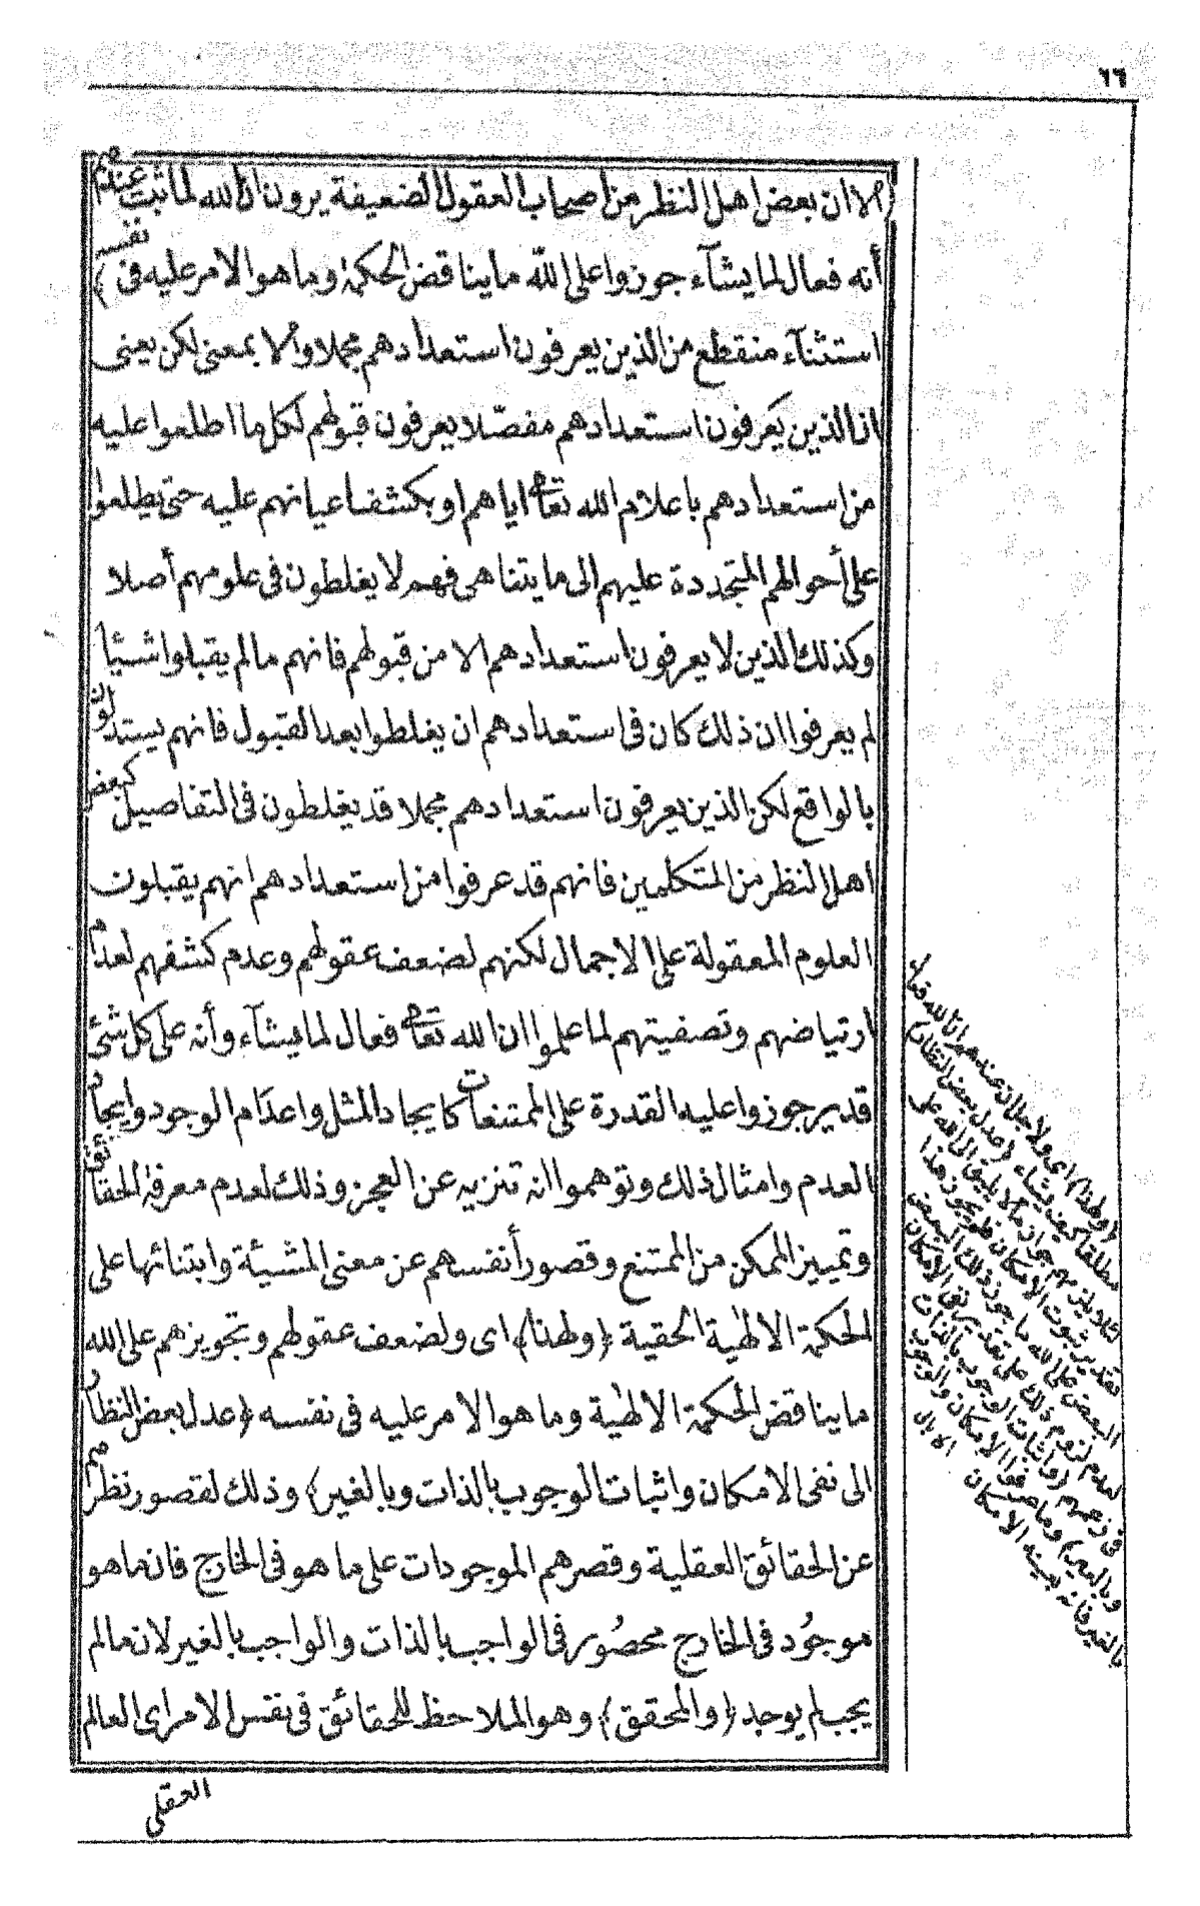 ٦٦
(الا ان بعض اهل النظر من اصحاب العقول الضعيفة يرون ان الله لما ثبت عندهم
أنه فعال لما يشآء جوزوا على الله ما يناقض الحكمة وما هو الامر عليه فى نفسه)
استثنآء منقطع من الذين يعرفون استعدادهم مجملا والا بمعنى لكن يعنى
ان الذين يعرفون استعدادهم مفصلا يعرفون قبولهم لكل ما اطلعوا عليه
من استعدادهم باعلام الله تعالى اياهم او بكشف اعيانهم عليه حتى يطلعوا
على أحوالهم المتجددة عليهم الى ما يتناهى فهم لا يغلطون فى علومهم أصلا
وكذلك الذين لا يعرفون استعدادهم الا من قبولهم فانهم مالم يقبلوا شيئا
لم يعرفوا ان ذلك كان فى استعدادهم ان يغلطوا بعد القبول فانهم يستدلون
بالواقع لكن الذين يعرفون استعدادهم مجملا قد يغلطون فى التفاصيل كبعض
اهل النظر من المتكلمين فانهم قد عرفوا من استعدادهم انهم يقبلون
العلوم المعقولة على الاجمال لكنهم لضعف عقولهم وعدم كشفهم لعدم
ارتياضهم وتصفيتهم لما علموا ان الله تعالى فعال لما يشآء وأنه على كل شئ
قدير جوزوا عليه القدرة على الممتنعات كايجاد المثل واعدام الوجود وايجاد
العدم وامثال ذلك وتوهموا انه تنزيه عن العجز وذلك لعدم معرفة الحقائق
وتمييز الممكن من الممتنع وقصور أنفسهم عن معنى المشيئة وابتنائها على
الحكمة الالهية الحقية (ولهذا) اى ولضعف عقولهم وتجويزهم على الله
ما يناقض الحكمة الالهية وما هو الامر عليه فى نفسه (عدل بعض النظار
الى نفى الامكان واثبات الوجوب بالذات وبالغير) وذلك لقصور نظرهم
عن الحقائق العقلية وقصرهم الموجودات على ما هو فى الخارج فان ما هو
موجود فى الخارج محصور فى الواجب بالذات والواجب بالغير لان مالم
يجب لم يوجد (والمحقق) وهو الملاحظ للحقائق فى نفس الامر اى العالم
العقلى
(ولهذا) اى ولاجل ان عندهم ان الله فعال
مطلقا كيف يشاء (عدل بعض النظار)
تقدير ثبوت الامكان
البعض على الله ما جوز ذلك البعض
لعدم لزوم ذلك على تقدير نفى الامكان
فى زعمهم (واثبات الوجوب بالذات
وبالغير) وما عرفوا الامكان والوجوب
بالغير فانه بعينه الامكان اه بالى